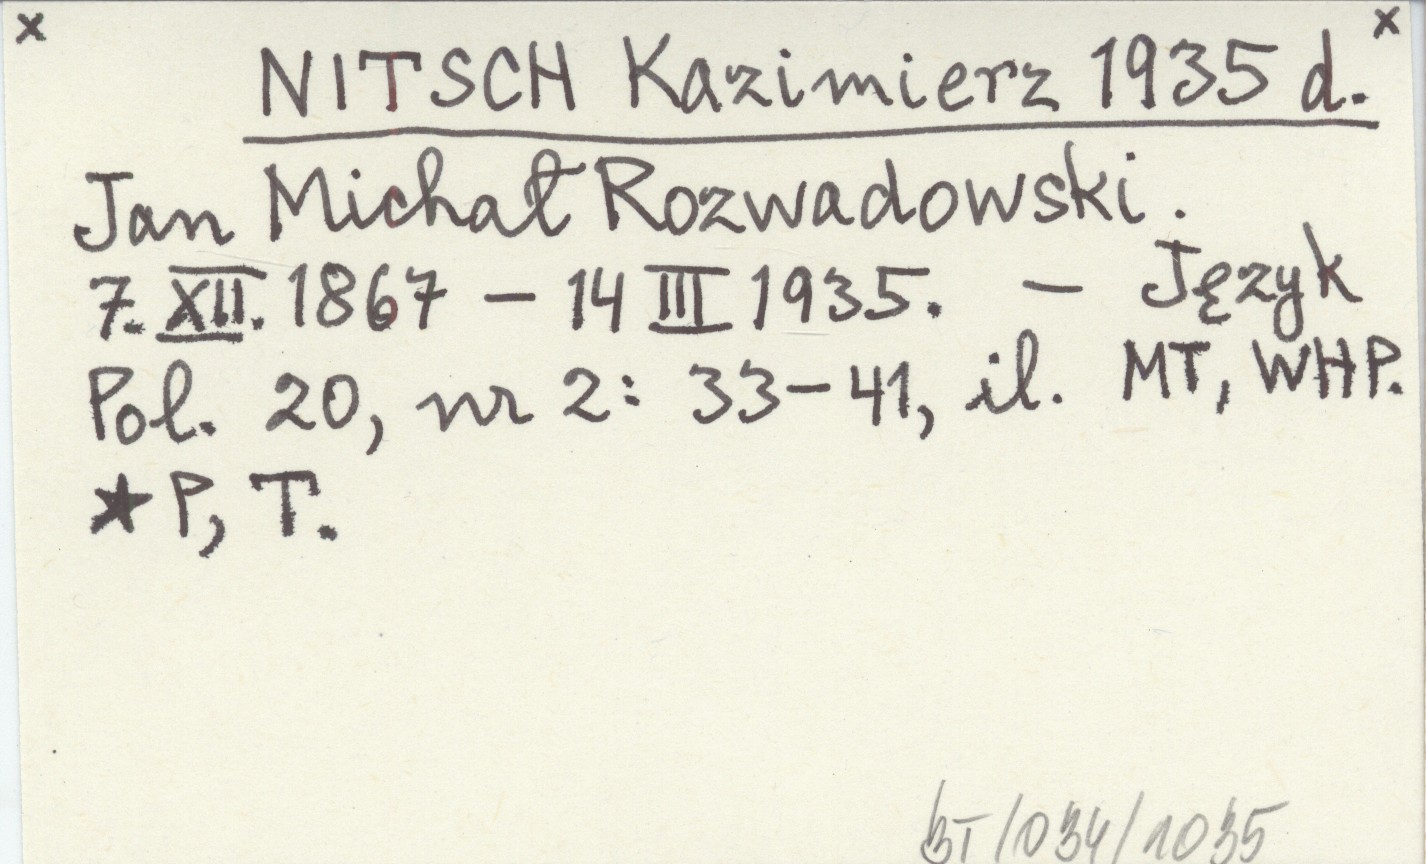 x x
NITSCH Kazimierz 1935 d.
Jan Michał Rozwadowski.
7. XII. 1867 – 14 III 1935. – Język
Pol. 20, nr 2: 33–41, il. MT, WHP.
★ P, T.
BT/034/1035